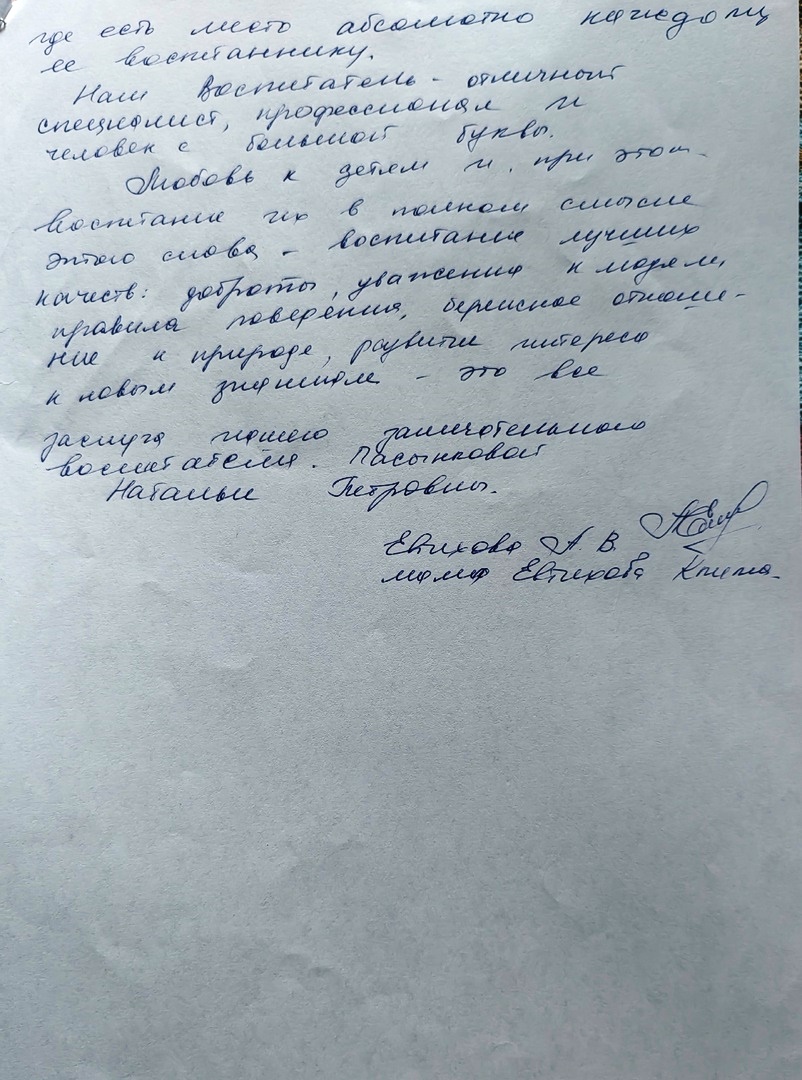 где есть место абсолютно каждому
ее воспитаннику.
Наш Воспитатель - отличный
специалист, профессионал и
человек с большой буквы.
Любовь к детям и, при этом
воспитание их в полном смысле
этого слова - воспитание лучших
качеств: доброты, уважения к людям,
правила поведения, бережное отноше-
ние к природе, развитие интереса
к новым знаниям - это все
заслуга нашего замечательного
воспитателя. Пасынковой
Натальи Петровны.
Евтихова А. В.
мама Евтихова